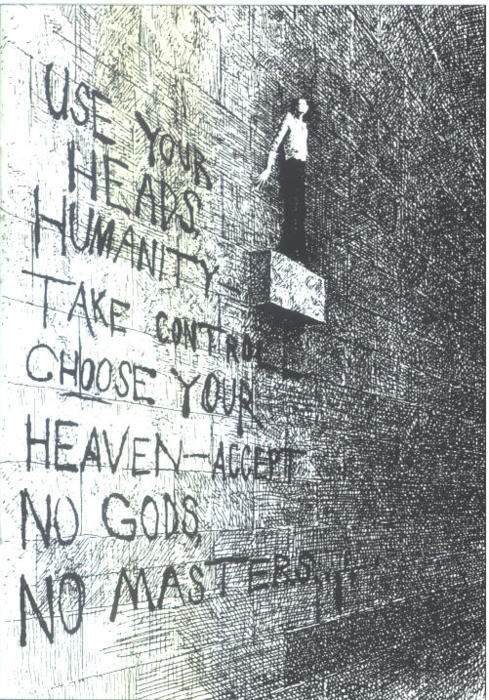 USE YOUR
HEADS,
HUMANITY_
TAKE CONTROL_
CHOOSE YOUR
HEAVEN—ACCEPT
NO GODS,
NO MASTERS...